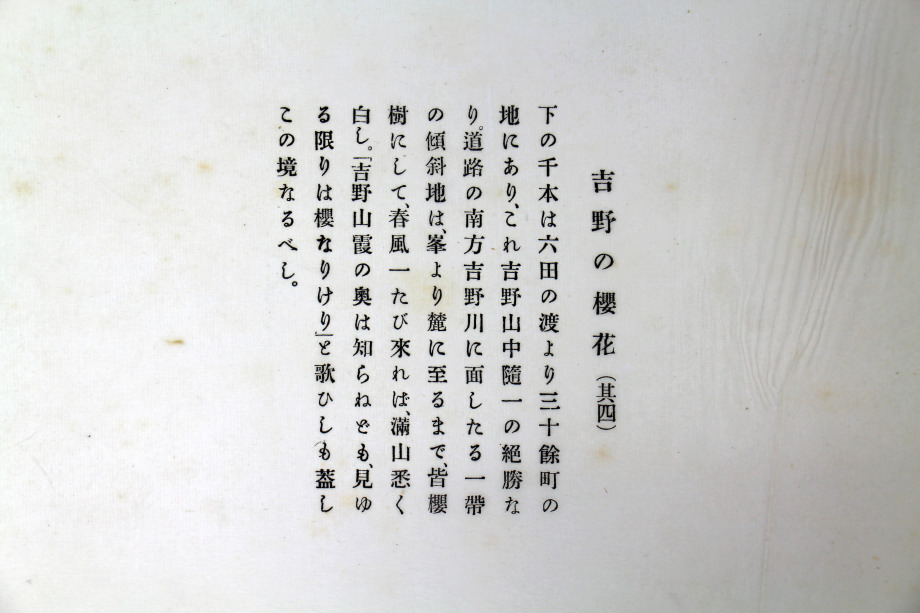 吉野の櫻花（其四）
下の千本は六田の渡より三十餘町の
地にあり、これ吉野山中隨一の絶勝な
り。道路の南方吉野川に面したる一帶
の傾斜地は、峯より麓に至るまで、皆櫻
樹にして、春風一たび來れば、滿山悉く
白し。「吉野山霞の奧は知らねども、見ゆ
る限りは櫻なりけり」と歌ひしも蓋し
この境なるべし。